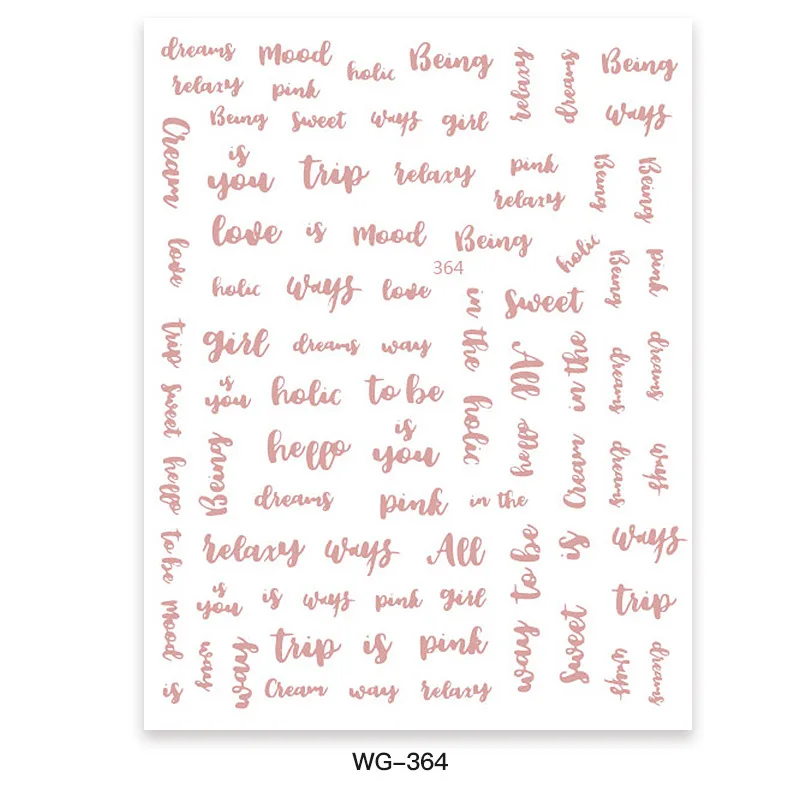 dreams Mood holic Being relaxy dreams Being
relaxy pink ways
Being sweet ways girl
Cream is you trip relaxy pink Being Being
relaxy
love is Mood Being holic
love 364 Being pink
holic ways love in the sweet
trip girl dreams way All in the dreams dreams
sweet is you holic to be holic
hello Being hello is you hello Cream dreams ways
dreams pink in the
to be relaxy ways All to be is ways
Mood is you is ways pink girl trip
way moon trip is pink way sweet ways dreams
is Cream way relaxy
WG-364